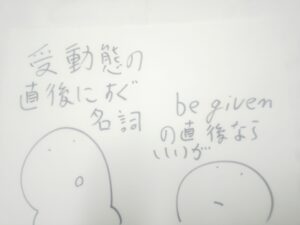 受動態の
直後にすぐ
名詞
be given
の直後なら
いいが